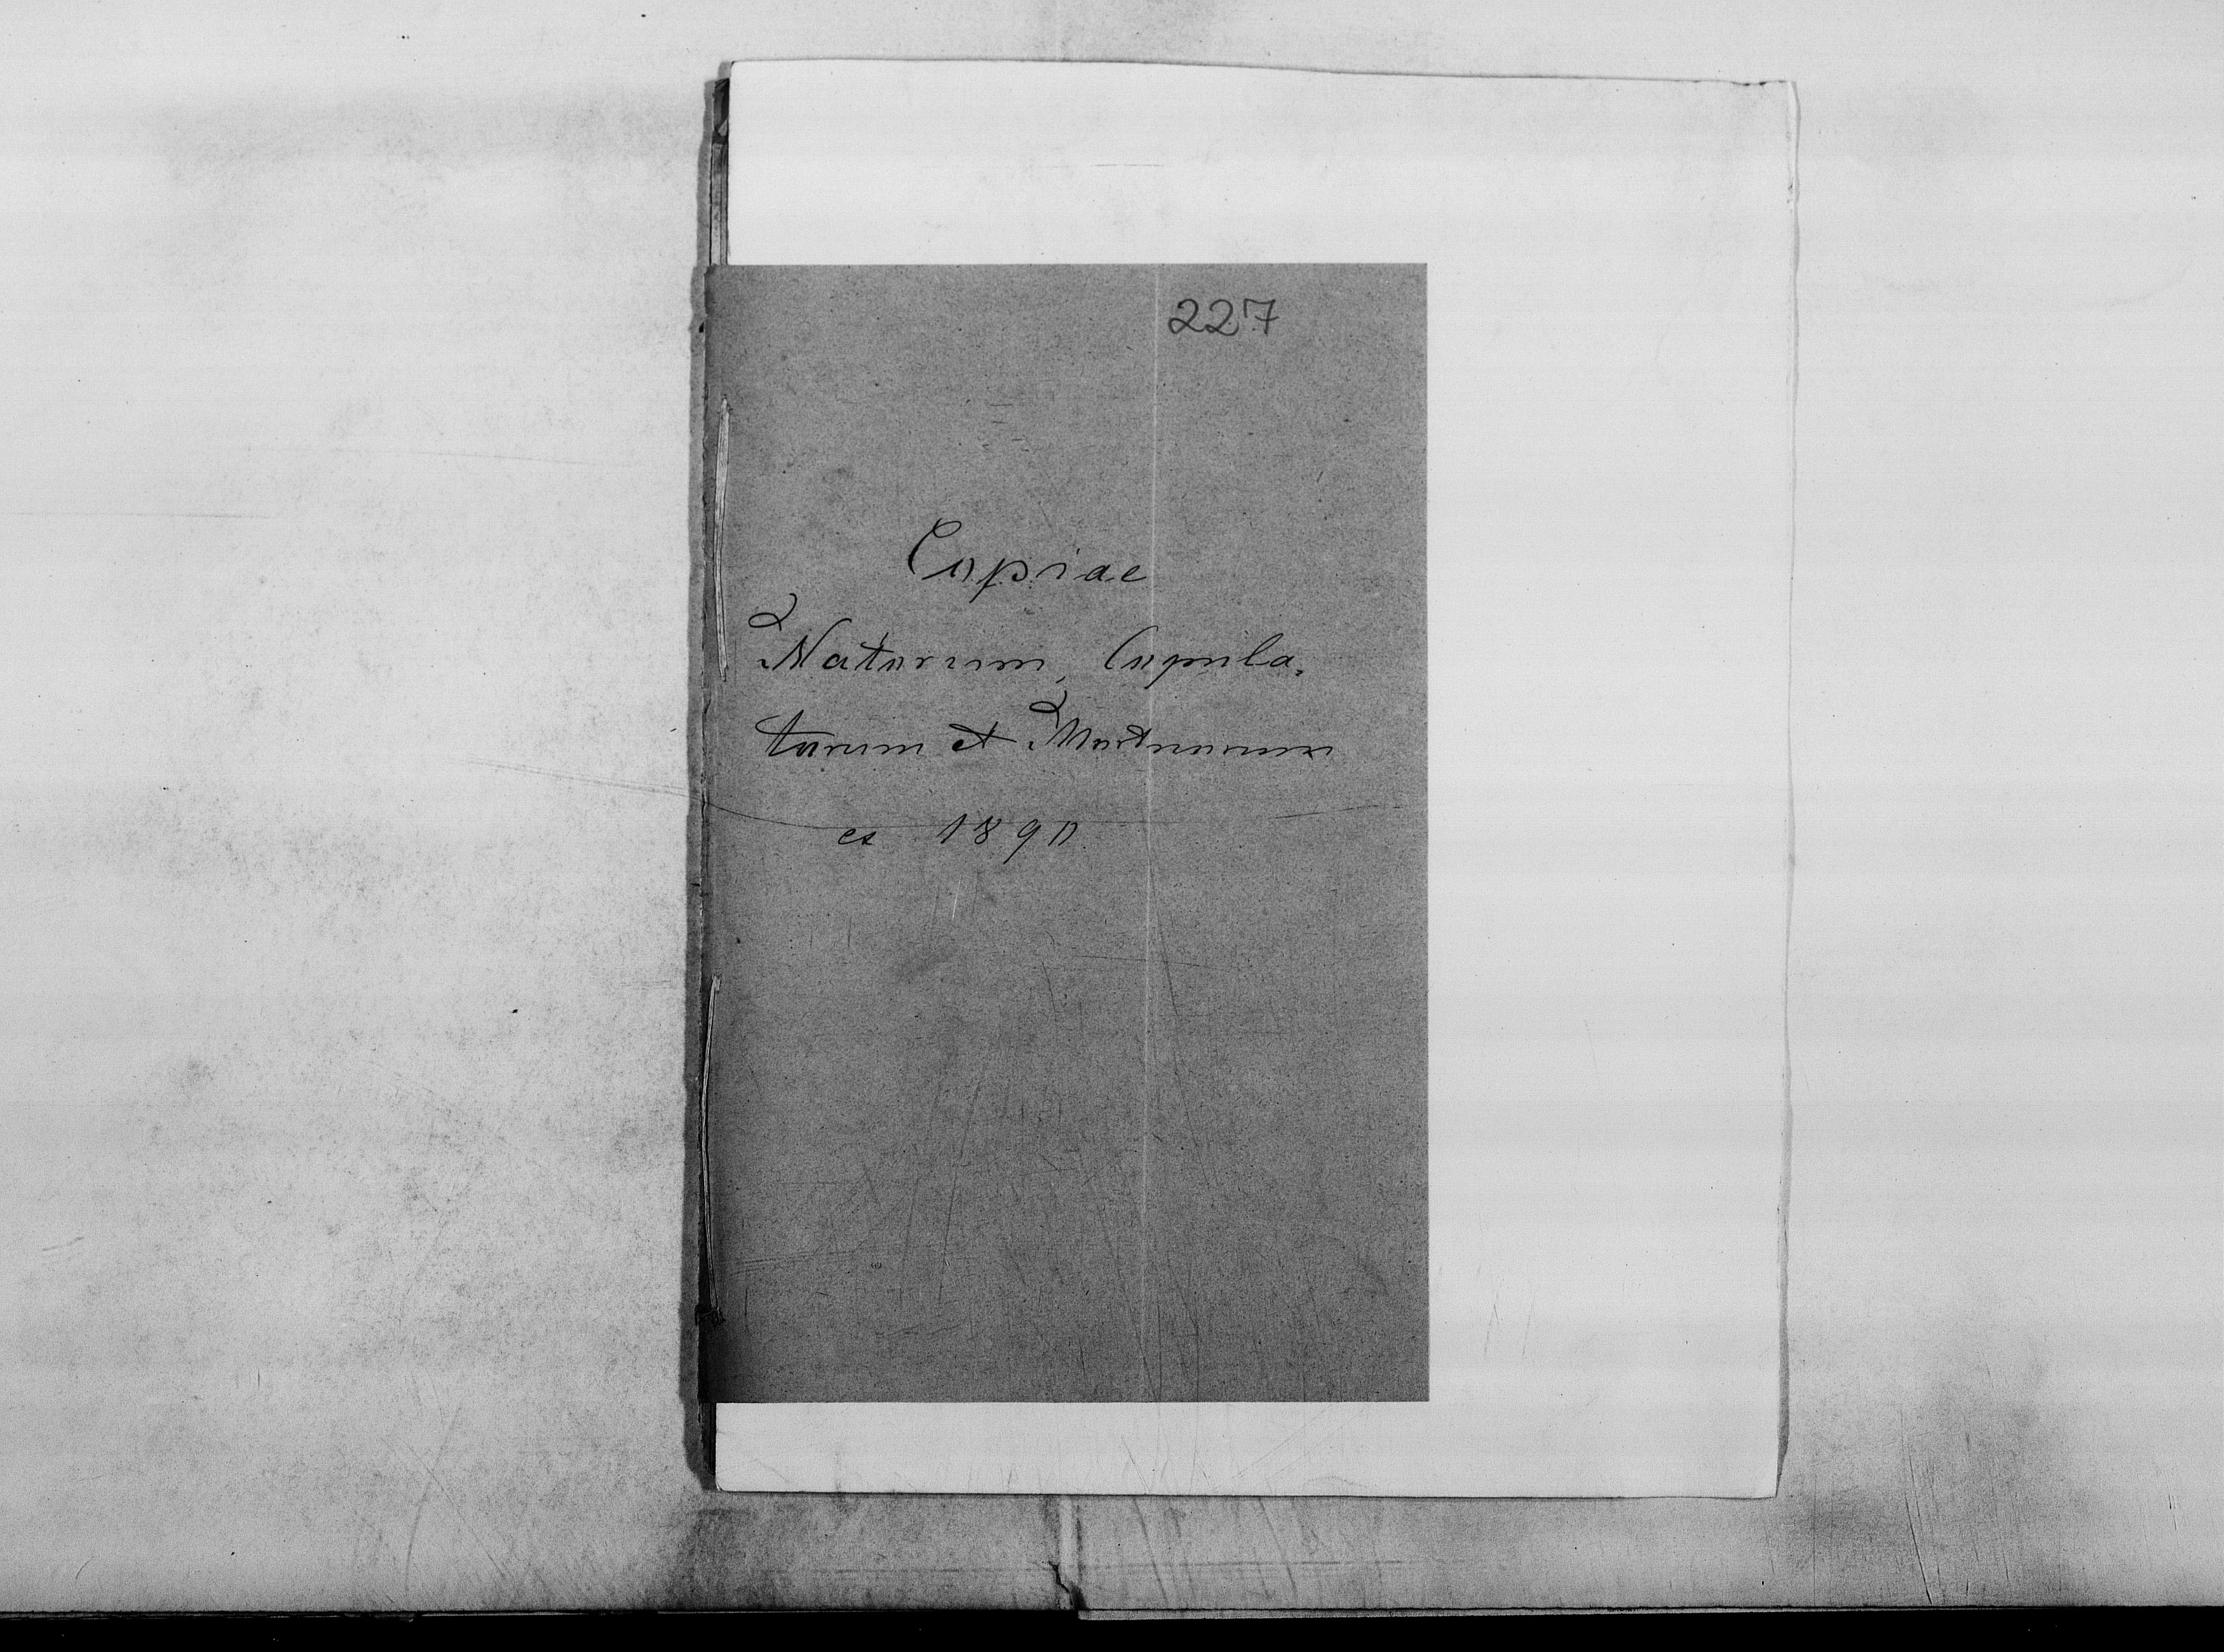 227
Copiae
Natorum, Copula-
torum et Mortuorum
ex 1890